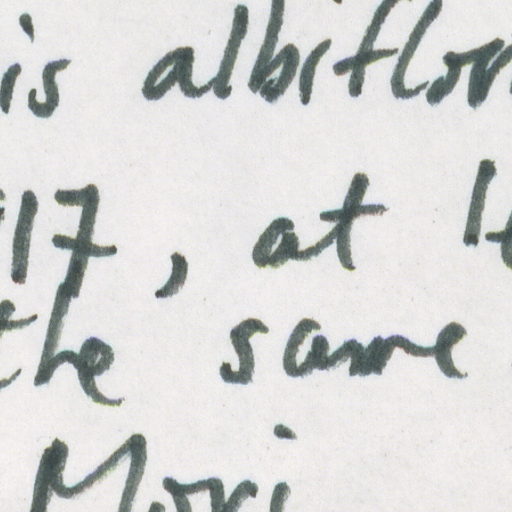 is albiflor
17, at
the same
Mori